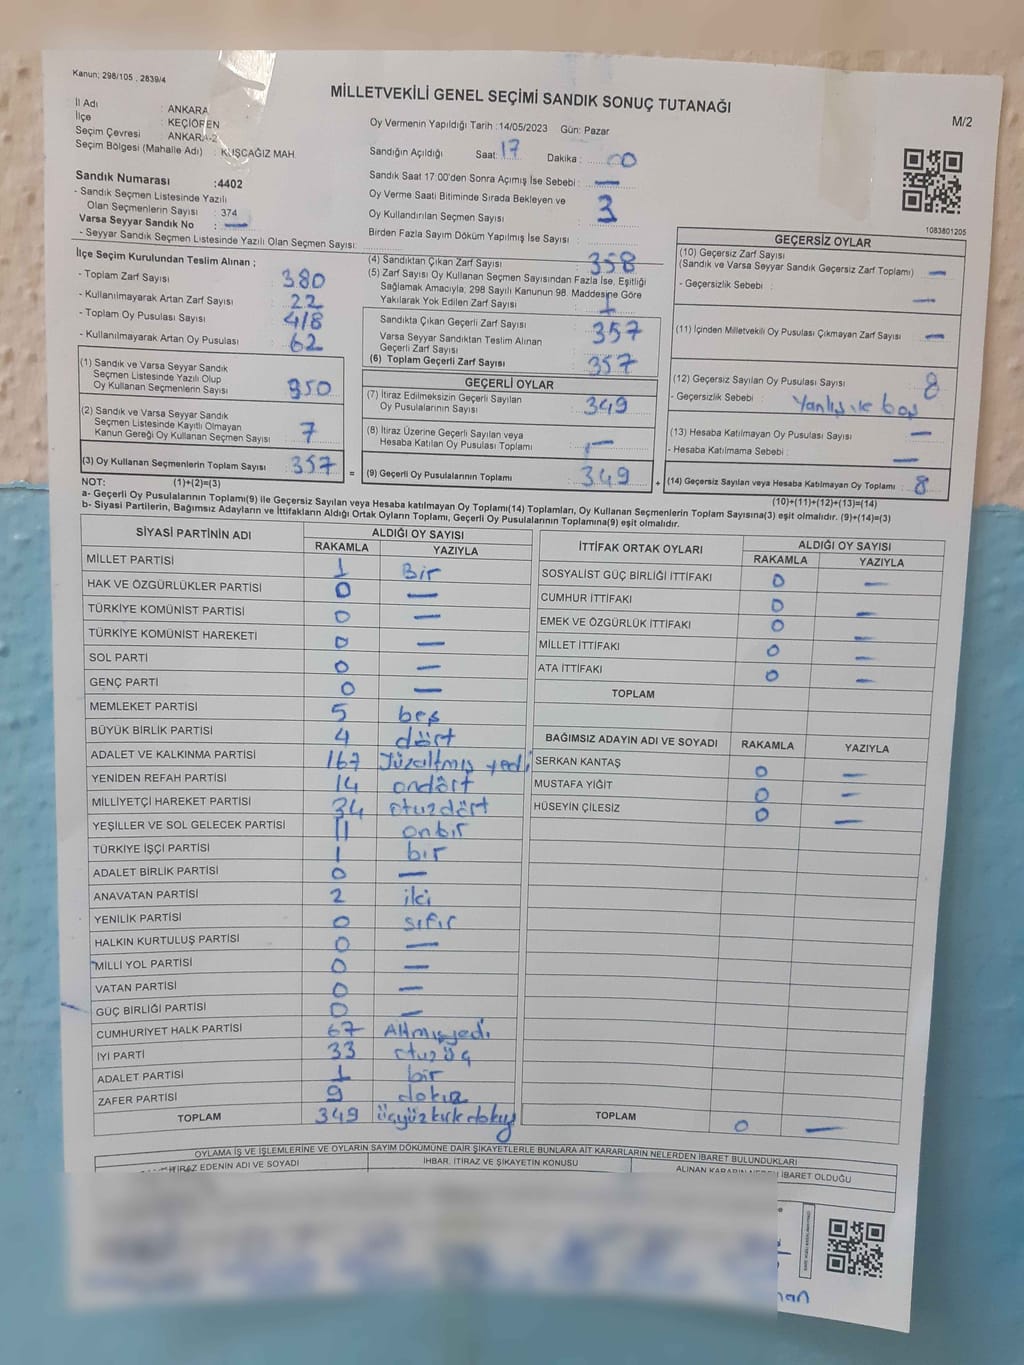 Kanun; 298/105 , 2839/4
MİLLETVEKİLİ GENEL SEÇİMİ SANDIK SONUÇ TUTANAĞI
M/2
İl Adı : ANKARA
İlçe : KEÇİÖREN
Seçim Çevresi : ANKARA-2
Seçim Bölgesi (Mahalle Adı) : KUŞCAĞIZ MAH.
Sandık Numarası :4402
- Sandık Seçmen Listesinde Yazılı
Olan Seçmenlerin Sayısı : 374
Varsa Seyyar Sandık No : —
- Seyyar Sandık Seçmen Listesinde Yazılı Olan Seçmen Sayısı:
Oy Vermenin Yapıldığı Tarih :14/05/2023 Gün: Pazar
Sandığın Açıldığı Saat: 17 Dakika : 00
Sandık Saat 17:00'den Sonra Açımış İse Sebebi : —
Oy Verme Saati Bitiminde Sırada Bekleyen ve
Oy Kullandırılan Seçmen Sayısı : 3
Birden Fazla Sayım Döküm Yapılmış İse Sayısı :
1083801205
İlçe Seçim Kurulundan Teslim Alınan ;
- Toplam Zarf Sayısı : 380
- Kullanılmayarak Artan Zarf Sayısı : 22
- Toplam Oy Pusulası Sayısı : 418
- Kullanılmayarak Artan Oy Pusulası : 62
(1) Sandık ve Varsa Seyyar Sandık
Seçmen Listesinde Yazılı Olup
Oy Kullanan Seçmenlerin Sayısı : 350
(2) Sandık ve Varsa Seyyar Sandık
Seçmen Listesinde Kayıtlı Olmayan
Kanun Gereği Oy Kullanan Seçmen Sayısı : 7
(3) Oy Kullanan Seçmenlerin Toplam Sayısı : 357 =
(4) Sandıktan Çıkan Zarf Sayısı : 358
(5) Zarf Sayısı Oy Kullanan Seçmen Sayısından Fazla İse, Eşitliği
Sağlamak Amacıyla; 298 Sayılı Kanunun 98. Maddesine Göre
Yakılarak Yok Edilen Zarf Sayısı : 1
Sandıkta Çıkan Geçerli Zarf Sayısı : 357
Varsa Seyyar Sandıktan Teslim Alınan
Geçerli Zarf Sayısı
(6) Toplam Geçerli Zarf Sayısı : 357
GEÇERLİ OYLAR
(7) İtiraz Edilmeksizin Geçerli Sayılan
Oy Pusulalarının Sayısı : 349
(8) İtiraz Üzerine Geçerli Sayılan veya
Hesaba Katılan Oy Pusulası Toplamı : —
(9) Geçerli Oy Pusulalarının Toplamı : 349 +
GEÇERSİZ OYLAR
(10) Geçersiz Zarf Sayısı
(Sandık ve Varsa Seyyar Sandık Geçersiz Zarf Toplamı) : —
- Geçersizlik Sebebi : —
(11) İçinden Milletvekili Oy Pusulası Çıkmayan Zarf Sayısı : —
(12) Geçersiz Sayılan Oy Pusulası Sayısı : 8
- Geçersizlik Sebebi : Yanlış ve boş
(13) Hesaba Katılmayan Oy Pusulası Sayısı : —
- Hesaba Katılmama Sebebi : —
(14) Geçersiz Sayılan veya Hesaba Katılmayan Oy Toplamı : 8
NOT: (1)+(2)=(3)
(10)+(11)+(12)+(13)=(14)
a- Geçerli Oy Pusulalarının Toplamı(9) ile Geçersiz Sayılan veya Hesaba katılmayan Oy Toplamı(14) Toplamları, Oy Kullanan Seçmenlerin Toplam Sayısına(3) eşit olmalıdır. (9)+(14)=(3)
b- Siyasi Partilerin, Bağımsız Adayların ve İttifakların Aldığı Ortak Oyların Toplamı, Geçerli Oy Pusulalarının Toplamına(9) eşit olmalıdır.
SİYASİ PARTİNİN ADI ALDIĞI OY SAYISI
RAKAMLA YAZIYLA
MİLLET PARTİSİ 1 Bir
HAK VE ÖZGÜRLÜKLER PARTİSİ 0 —
TÜRKİYE KOMÜNİST PARTİSİ 0 —
TÜRKİYE KOMÜNİST HAREKETİ 0 —
SOL PARTİ 0 —
GENÇ PARTİ 0 —
MEMLEKET PARTİSİ 5 beş
BÜYÜK BİRLİK PARTİSİ 4 dört
ADALET VE KALKINMA PARTİSİ 167 Yüzaltmış yedi
YENİDEN REFAH PARTİSİ 14 ondört
MİLLİYETÇİ HAREKET PARTİSİ 34 otuzdört
YEŞİLLER VE SOL GELECEK PARTİSİ 11 onbir
TÜRKİYE İŞÇİ PARTİSİ 1 bir
ADALET BİRLİK PARTİSİ 0 —
ANAVATAN PARTİSİ 2 iki
YENİLİK PARTİSİ 0 sıfır
HALKIN KURTULUŞ PARTİSİ 0 —
MİLLİ YOL PARTİSİ 0 —
VATAN PARTİSİ 0 —
GÜÇ BİRLİĞİ PARTİSİ 0 —
CUMHURİYET HALK PARTİSİ 67 Altmışyedi
İYİ PARTİ 33 otuz üç
ADALET PARTİSİ 1 bir
ZAFER PARTİSİ 9 dokuz
TOPLAM 349 üçyüzkırkdokuz
İTTİFAK ORTAK OYLARI ALDIĞI OY SAYISI
RAKAMLA YAZIYLA
SOSYALİST GÜÇ BİRLİĞİ İTTİFAKI 0 —
CUMHUR İTTİFAKI 0 —
EMEK VE ÖZGÜRLÜK İTTİFAKI 0 —
MİLLET İTTİFAKI 0 —
ATA İTTİFAKI 0 —
TOPLAM
BAĞIMSIZ ADAYIN ADI VE SOYADI RAKAMLA YAZIYLA
SERKAN KANTAŞ 0 —
MUSTAFA YİĞİT 0 —
HÜSEYİN ÇİLESİZ 0 —
TOPLAM 0 —
OYLAMA İŞ VE İŞLEMLERİNE VE OYLARIN SAYIM DÖKÜMÜNE DAİR ŞİKAYETLERLE BUNLARA AİT KARARLARIN NELERDEN İBARET BULUNDUKLARI
İTİRAZ EDENİN ADI VE SOYADI İHBAR, İTİRAZ VE ŞİKAYETİN KONUSU ALINAN KARARIN NEDEN İBARET OLDUĞU